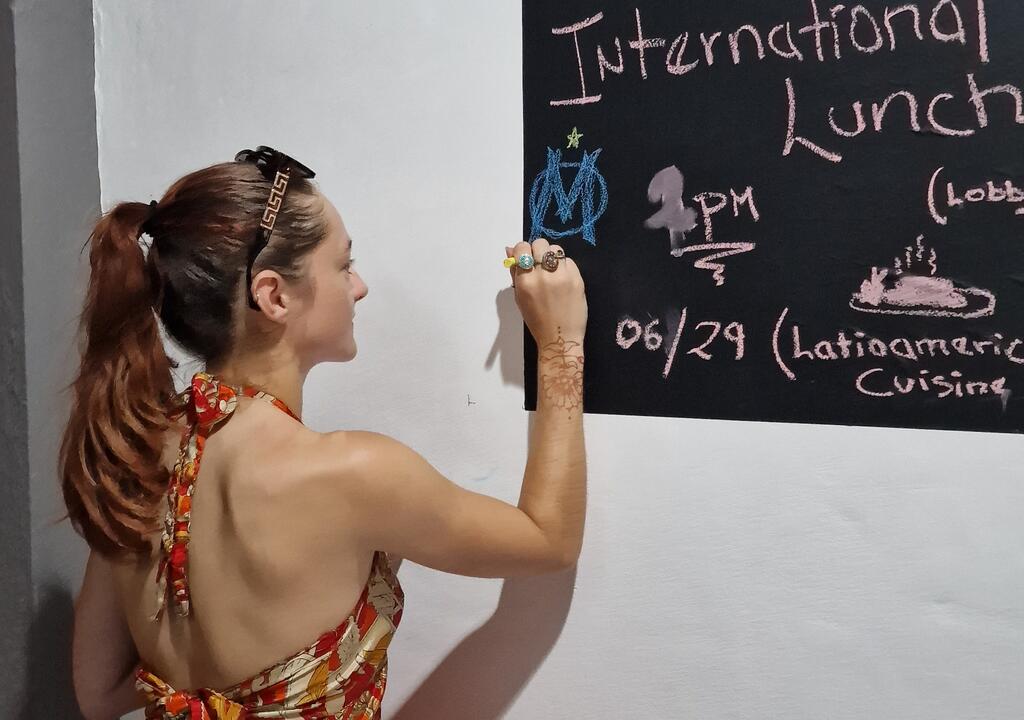 International
Lunch
PM
(Lobby
06/29 (Latinoameric
Cuisine
M